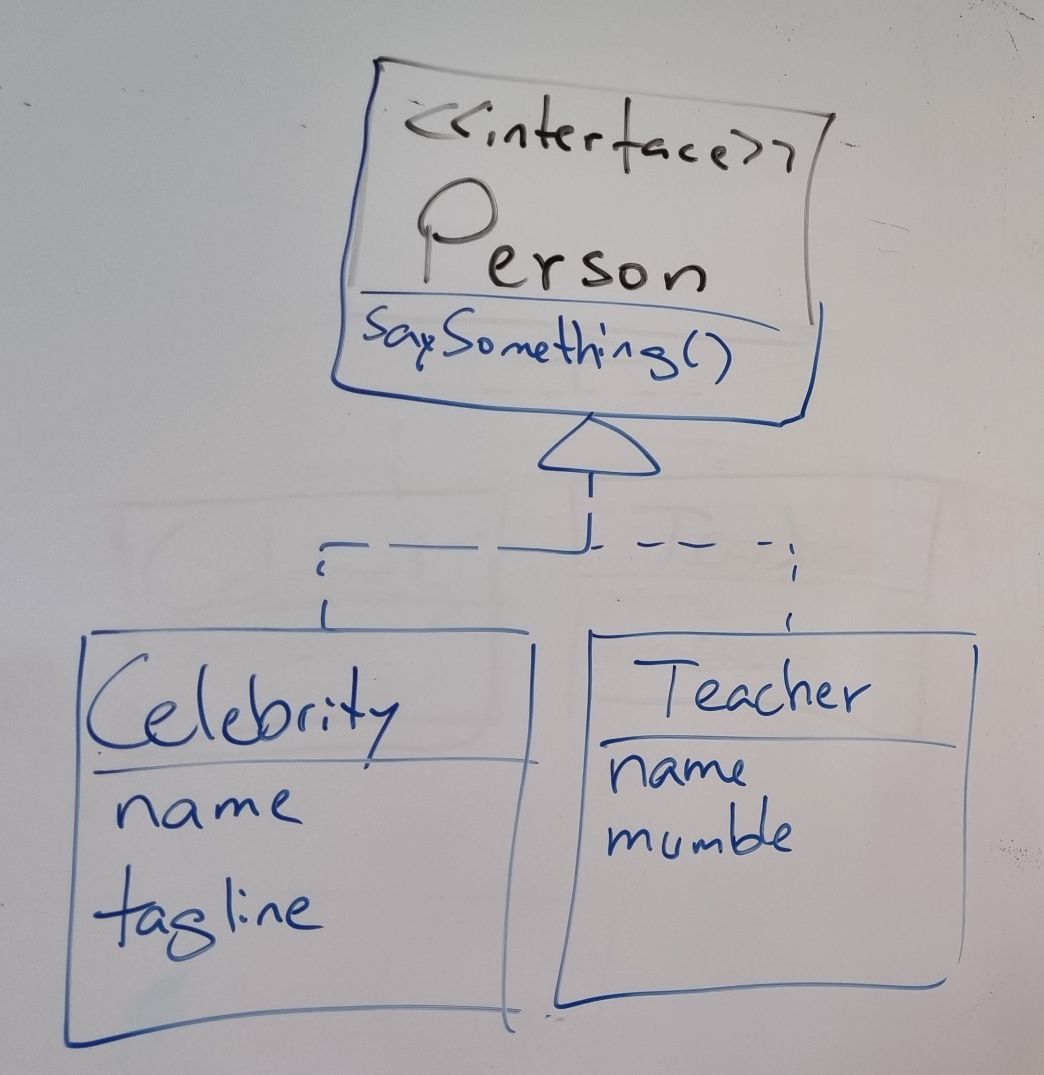 <<interface>>
Person
saySomething()
Celebrity
name
tagline
Teacher
name
mumble